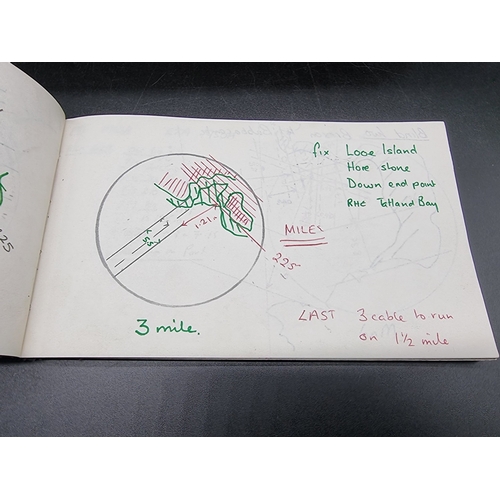 fix Looe Island
Hore stone
Down end point
RHE Talland Bay
MILES
1.21
225
3 mile.
LAST 3 cable to run
on 1 1/2 mile
25